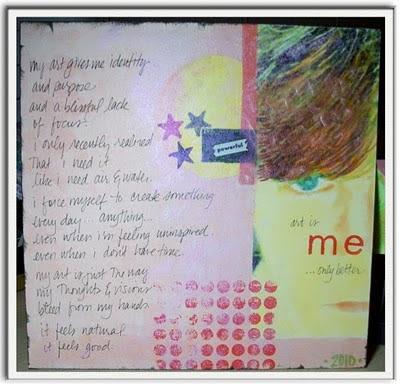 my art gives me identity
and purpose
and a blissful lack
of focus.
i only recently realized
That i need it
like i need air & water.
i force myself to create something
every day... anything...
even when i'm feeling uninspired.
even when i don't have time.
my art is just the way
my Thoughts & visions
bleed from my hands.
it feels natural
it feels good.
powerful
art is
me
...only better.
2010